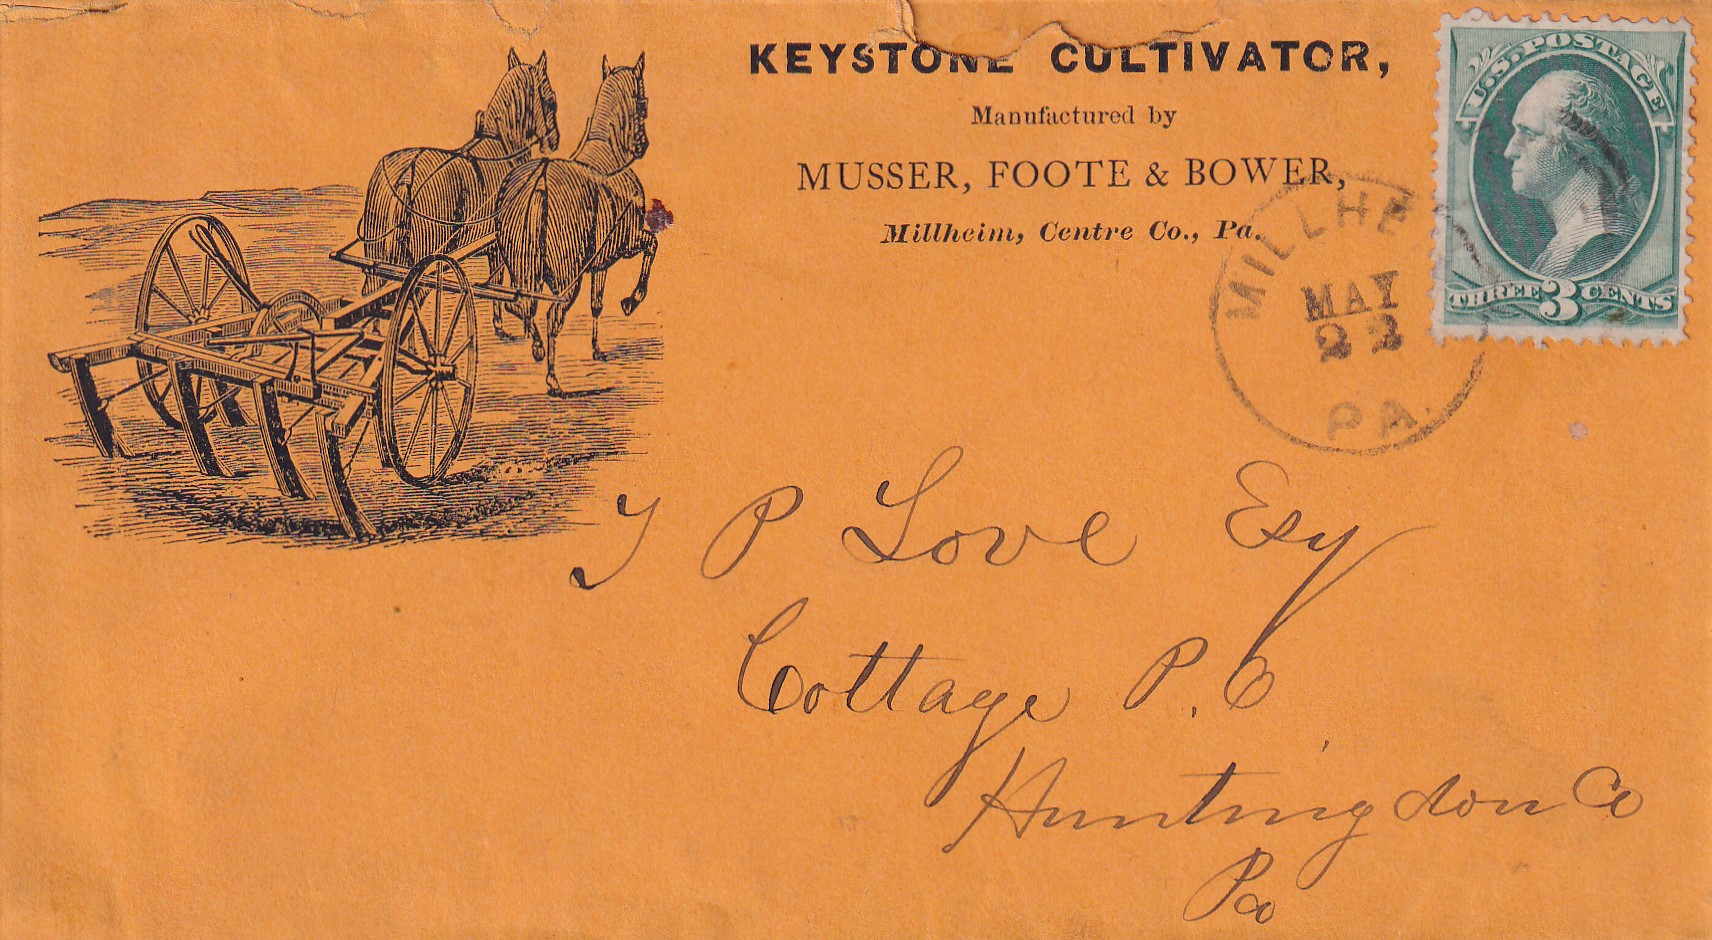 KEYSTONE CULTIVATOR,
Manufactured by
MUSSER, FOOTE & BOWER,
Millheim, Centre Co., Pa.
U.S. POSTAGE
THREE 3 CENTS
MILLHE
MAY
22
PA.
P Love Esq
Cottage P.O
Huntingdon Co
Pa